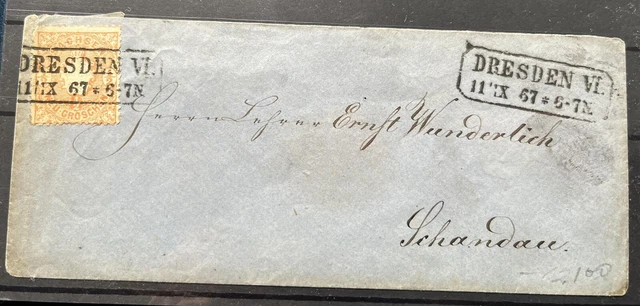 DRESDEN VI.
11 IX 67 * 6-7N
DRESDEN VI.
11 IX 67 * 6-7N
GROSCH
Herrn Lehrer Ernst Wunderlich
Schandau.
100